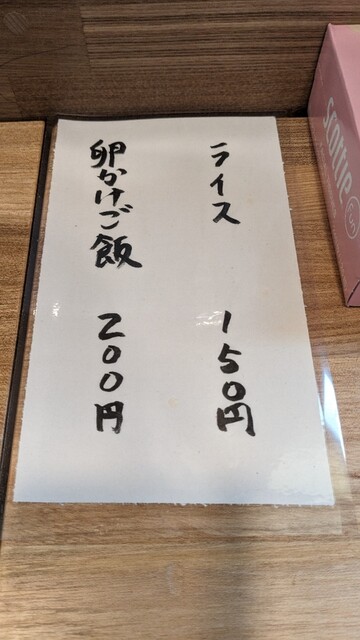 ライス 150円
卵かけご飯 200円
Scottie